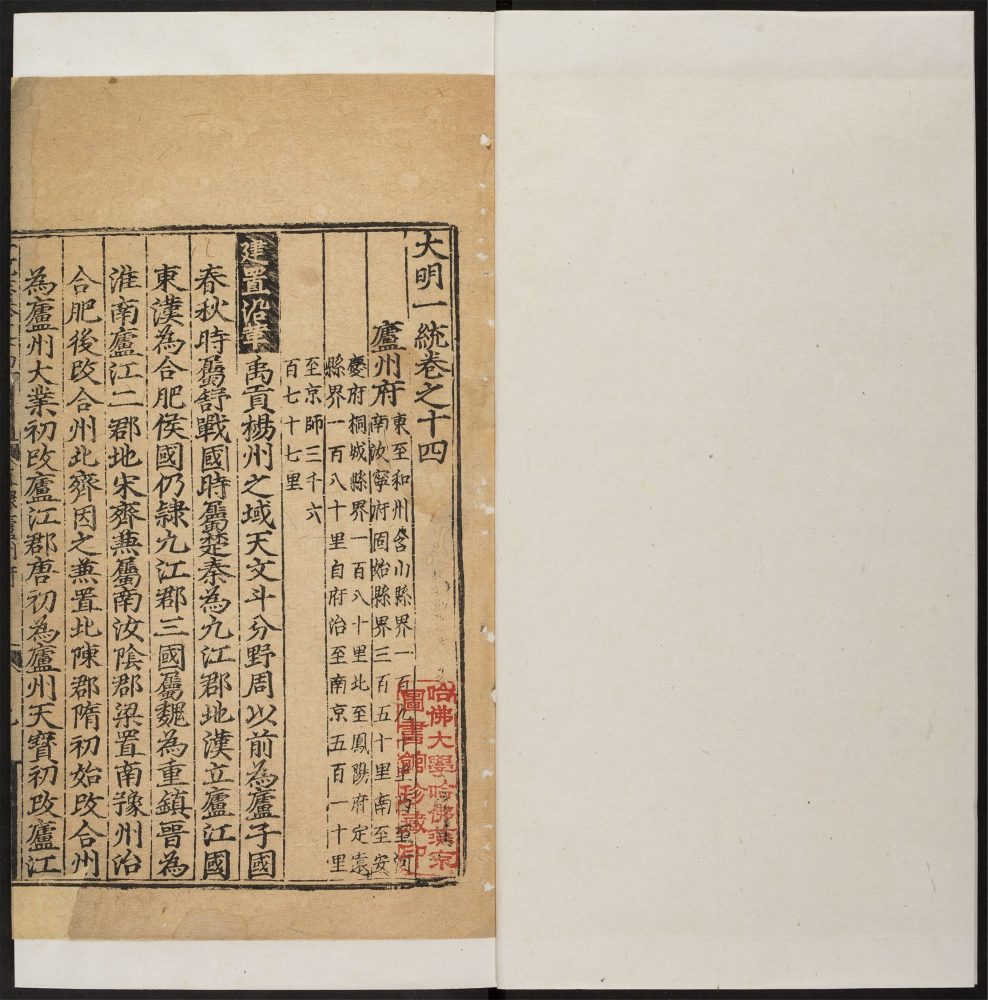 大明一統卷之十四
廬州府
東至和州含山縣界一百九十里西至河
南汝寧府固始縣界三百五十里南至安
慶府桐城縣界一百八十里北至鳳陽府定遠
縣界一百八十里自府治至南京五百一十里
至京師三千六
百七十七里
建置沿革 禹貢楊州之域天文斗分野周以前為廬子國
春秋時屬舒戰國時屬楚秦為九江郡地漢立廬江國
東漢為合肥侯國仍隸九江郡三國屬魏為重鎮晉為
淮南廬江二郡地宋齊兼屬南汝陰郡梁置南豫州治
合肥後改合州北齊因之兼置北陳郡隋初始改合州
為廬州大業初改廬江郡唐初為廬州天寶初改廬江
哈佛大學哈佛燕京
圖書館珍藏印